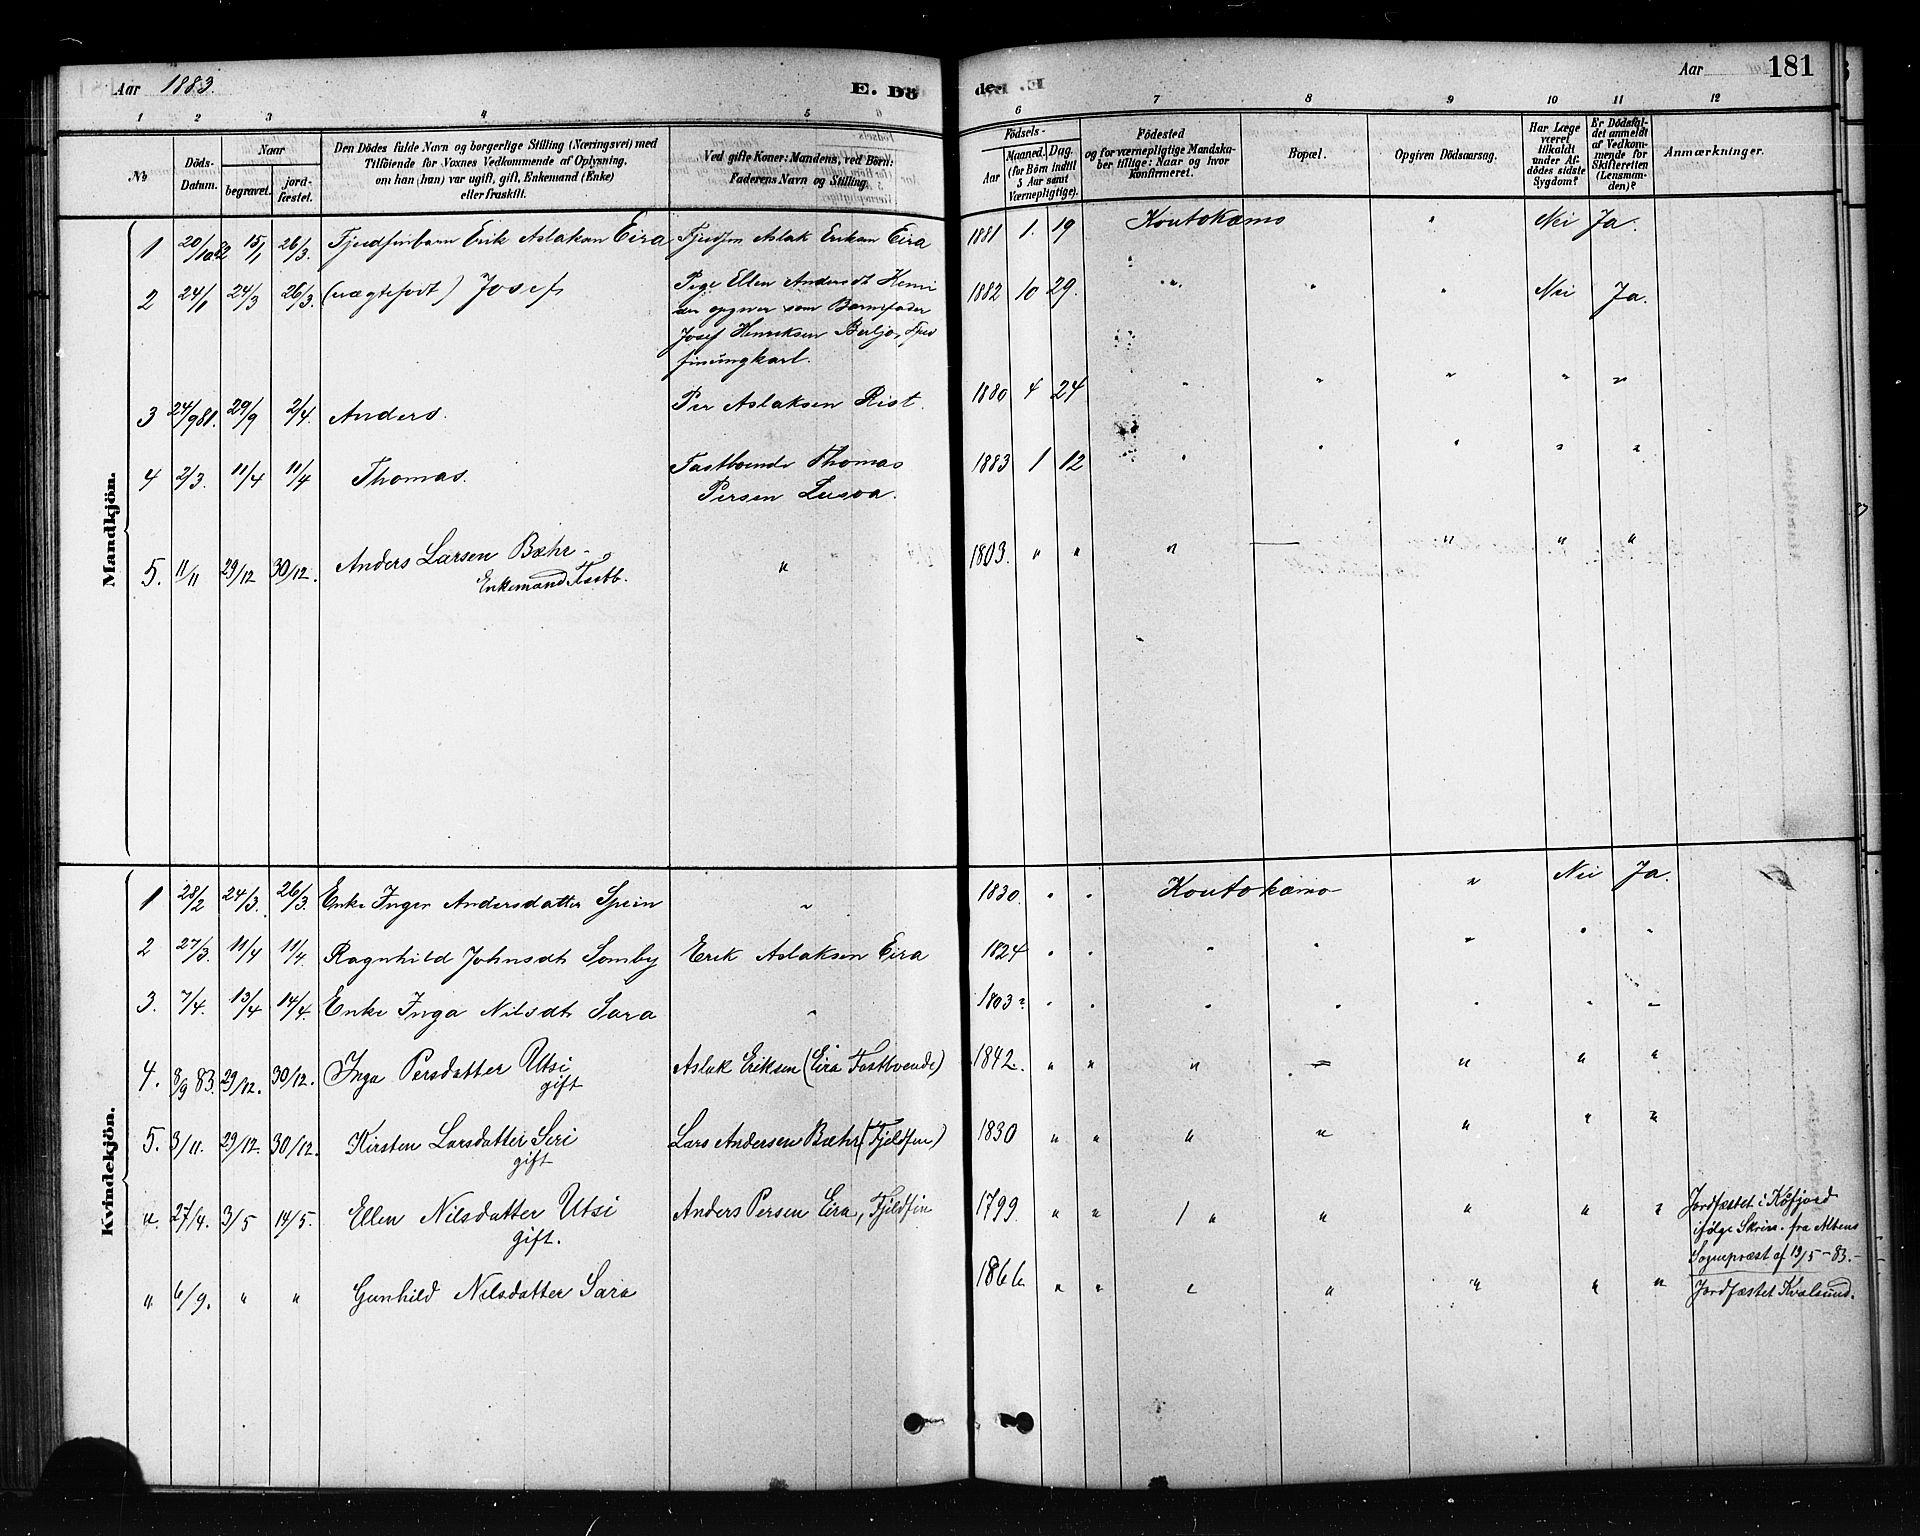 Aar 1883.
E. Dö
de. E
Aar 181
1 2 3 4 5 6
6 7 8 9 10 11 12
No
Döds-Datum.
Naar
begravet.
jord-fæstet.
Den Dödes fulde Navn og borgerlige Stilling (Næringsvei) med
Tilföiende for Voxnes Vedkommende af Oplysning,
om han (hun) var ugift, gift, Enkemand (Enke)
eller fraskilt.
Ved gifte Koner: Mandens, ved Börn:
Faderens Navn og Stilling.
Födsels-
Aar
Maaned. Dag.
(for Börn indtil
5 Aar samt
Værnepligtige).
Födested
og for værnepligtige Mandska-
ber tillige: Naar og hvor
Konfirmeret.
Bopæl.
Opgiven Dödsaarsag.
Har Læge
været
tilkaldt
under Af-
dödes sidste
Sygdom?
Er Dödsfal-
det anmeldt
af Vedkom-
mende for
Skifteretten
(Lensman-
den)?
Anmærkninger.
Mandkjön.
1 20/10 82 15/1 26/3. Fjeldfinbarn Erik Aslaksen Eira Fjeldfin Aslak Eriksen Eira 1881 1. 19 Koutokæino " Nei Ja.
2 24/1 24/3 26/3. (uægtefødt) Josef Pige Ellen Andersdt Kemi 1882 10 29. " " " Nei Ja.
der opgiver som Barnefader
Josef Henriksen Bæljo, Fjeld
finungkarl.
3 24/9 81. 29/9 2/4. Anders. Per Aslaksen Rist. 1880 4 24 " " " " "
4 2/3. 11/4 11/4 Thomas. Fastboende Thomas 1883 1 12 " " " " "
Persen
5. 11/11 29/12 30/12. Anders Larsen Bæhr - " 1803. " " " — " " "
Enkemand Fastb.
Kvindekjön.
1 28/2 24/3. 26/3. Enke Inger Andersdatter Spein " 1830. " " Koutokæino " Nei Ja.
2 27/3. 11/4 11/4. Ragnhild Johnsdt Somby Erik Aslaksen Eira 1824 " " " " " " "
3. 7/4. 13/4 14/4. Enke Inga Nilsdt Sara " 1803. " " " " " " "
4. 8/9 83. 29/12. 30/12. Inga Persdatter Utsi Aslak Eriksen (Eira Fastboende) 1842. " " " " " " "
gift
5. 3/11. 29/12. 30/12. Kirsten Larsdatter Siri Lars Andersen Bæhr (Fjeldfin) 1830 " " " " " " "
gift
". 27/4. 3/5 14/5. Ellen Nilsdatter Utsi Anders Persen Eira, Fjeldfin 1799. " " " " " " " Jordfæstet i Køfjord
gift. ifølge Skriv. fra Altens
Sognepræst af 19/5 - 83. -
". 6/9. " " Gunhild Nilsdatter Sara 1866 " " " " " " " Jordfæstet Kvalsund.